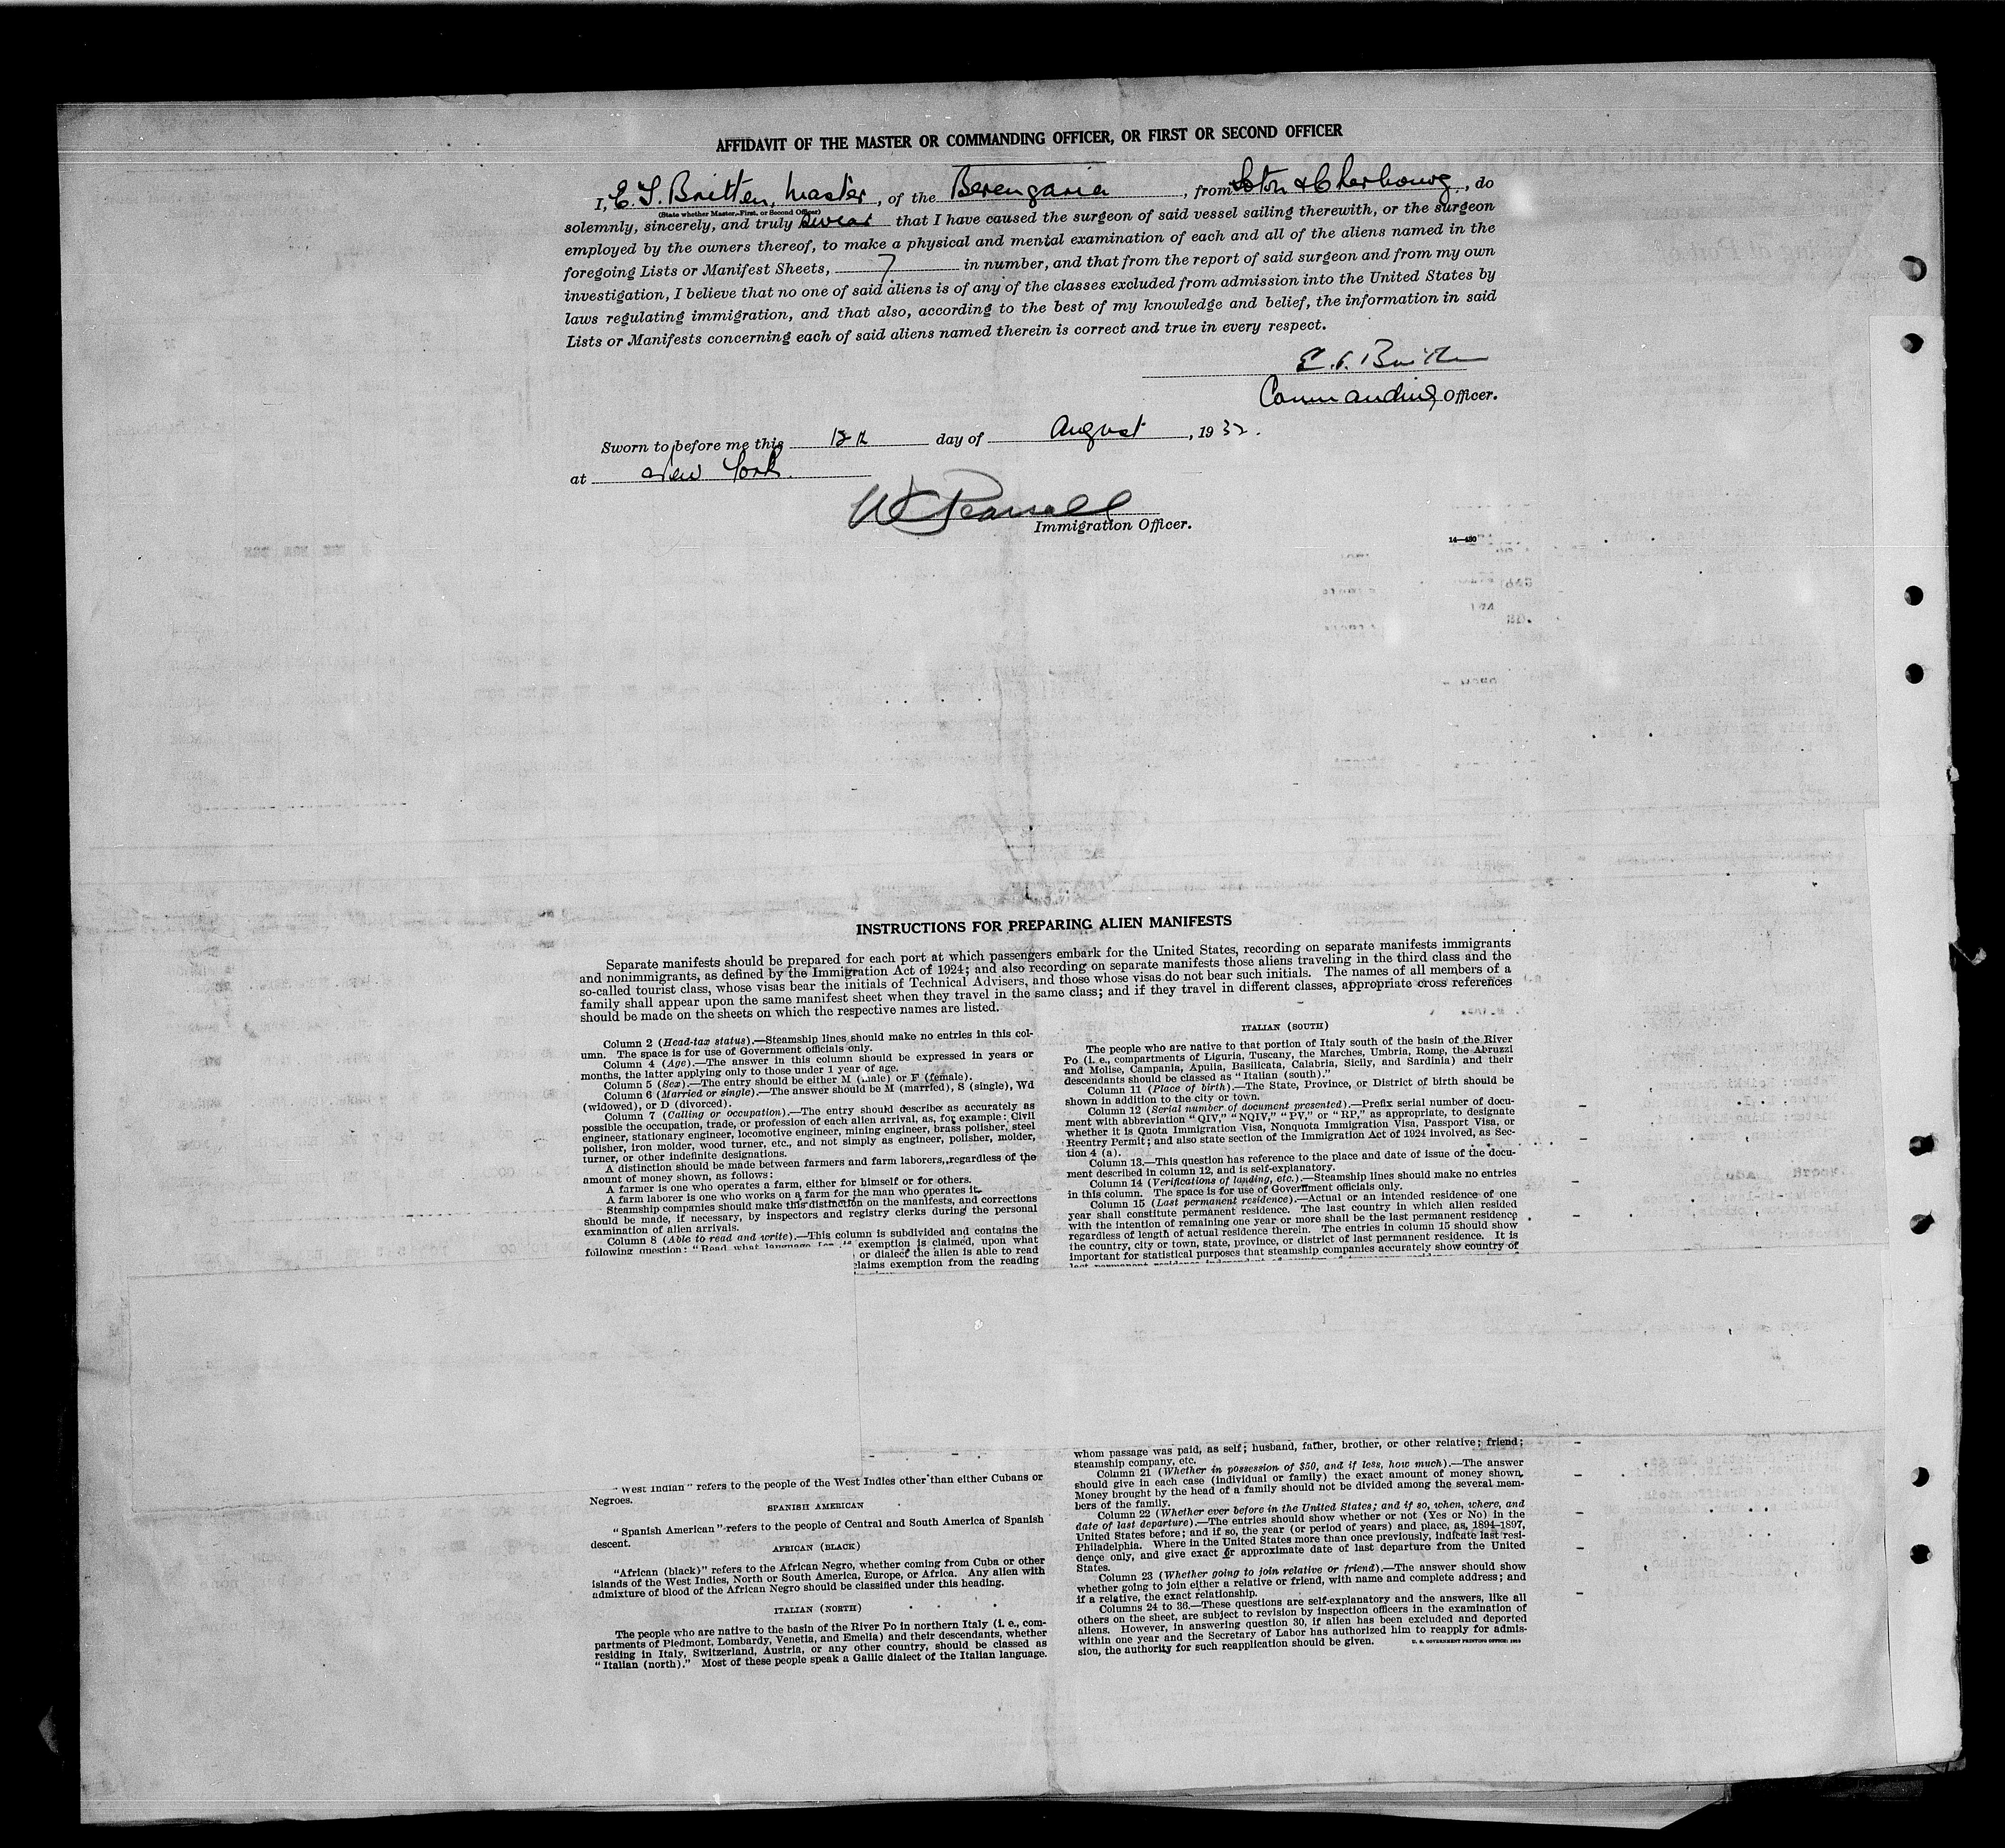 AFFIDAVIT OF THE MASTER OR COMMANDING OFFICER, OR FIRST OR SECOND OFFICER
I, E. T. Britten, Master, of the Berengaria, from Soton & Cherbourg, do
(State whether Master, First, or Second Officer)
solemnly, sincerely, and truly swear that I have caused the surgeon of said vessel sailing therewith, or the surgeon
employed by the owners thereof, to make a physical and mental examination of each and all of the aliens named in the
foregoing Lists or Manifest Sheets, 7 in number, and that from the report of said surgeon and from my own
investigation, I believe that no one of said aliens is of any of the classes excluded from admission into the United States by
laws regulating immigration, and that also, according to the best of my knowledge and belief, the information in said
Lists or Manifests concerning each of said aliens named therein is correct and true in every respect.
E. T. Britten
Commanding Officer.
Sworn to before me this 12th day of August, 1932.
at New York.
Immigration Officer.
14—480
INSTRUCTIONS FOR PREPARING ALIEN MANIFESTS
Separate manifests should be prepared for each port at which passengers embark for the United States, recording on separate manifests immigrants
and nonimmigrants, as defined by the Immigration Act of 1924; and also recording on separate manifests those aliens traveling in the third class and the
so-called tourist class, whose visas bear the initials of Technical Advisers, and those whose visas do not bear such initials. The names of all members of a
family shall appear upon the same manifest sheet when they travel in the same class; and if they travel in different classes, appropriate cross references
should be made on the sheets on which the respective names are listed.
Column 2 (Head-tax status).—Steamship lines should make no entries in this col-
umn. The space is for use of Government officials only.
Column 4 (Age).—The answer in this column should be expressed in years or
months, the latter applying only to those under 1 year of age.
Column 5 (Sex).—The entry should be either M (male) or F (female).
Column 6 (Married or single).—The answer should be M (married), S (single), Wd
(widowed), or D (divorced).
Column 7 (Calling or occupation).—The entry should describe as accurately as
possible the occupation, trade, or profession of each alien arrival, as, for example: Civil
engineer, stationary engineer, locomotive engineer, mining engineer, brass polisher, steel
polisher, iron molder, wood turner, etc., and not simply as engineer, polisher, molder,
turner, or other indefinite designations.
A distinction should be made between farmers and farm laborers, regardless of the
amount of money shown, as follows:
A farmer is one who operates a farm, either for himself or for others.
A farm laborer is one who works on a farm for the man who operates it.
Steamship companies should make this distinction on the manifests, and corrections
should be made, if necessary, by inspectors and registry clerks during the personal
examination of alien arrivals.
Column 8 (Able to read and write).—This column is subdivided and contains the
following question: "Read what language exemption is claimed, upon what
or dialect the alien is able to read
claims exemption from the reading
"West Indian" refers to the people of the West Indies other than either Cubans or
Negroes.
SPANISH AMERICAN
"Spanish American" refers to the people of Central and South America of Spanish
descent.
AFRICAN (BLACK)
"African (black)" refers to the African Negro, whether coming from Cuba or other
islands of the West Indies, North or South America, Europe, or Africa. Any alien with
admixture of blood of the African Negro should be classified under this heading.
ITALIAN (NORTH)
The people who are native to the basin of the River Po in northern Italy (i. e., com-
partments of Piedmont, Lombardy, Venetia, and Emelia) and their descendants, whether
residing in Italy, Switzerland, Austria, or any other country, should be classed as
"Italian (north)." Most of these people speak a Gallic dialect of the Italian language.
ITALIAN (SOUTH)
The people who are native to that portion of Italy south of the basin of the River
Po (i. e., compartments of Liguria, Tuscany, the Marches, Umbria, Rome, the Abruzzi
and Molise, Campania, Apulia, Basilicata, Calabria, Sicily, and Sardinia) and their
descendants should be classed as "Italian (south)."
Column 11 (Place of birth).—The State, Province, or District of birth should be
shown in addition to the city or town.
Column 12 (Serial number of document presented).—Prefix serial number of docu-
ment with abbreviation "QIV," "NQIV," "PV," or "RP," as appropriate, to designate
whether it is Quota Immigration Visa, Nonquota Immigration Visa, Passport Visa, or
Reentry Permit; and also state section of the Immigration Act of 1924 involved, as Sec-
tion 4 (a).
Column 13.—This question has reference to the place and date of issue of the docu-
ment described in column 12, and is self-explanatory.
Column 14 (Verifications of landing, etc.).—Steamship lines should make no entries
in this column. The space is for use of Government officials only.
Column 15 (Last permanent residence).—Actual or an intended residence of one
year shall constitute permanent residence. The last country in which alien resided
with the intention of remaining one year or more shall be the last permanent residence
regardless of length of actual residence therein. The entries in column 15 should show
the country, city or town, state, province, or district of last permanent residence. It is
important for statistical purposes that steamship companies accurately show country of
last permanent residence
whom passage was paid, as self; husband, father, brother, or other relative; friend;
steamship company, etc.
Column 21 (Whether in possession of $50, and if less, how much).—The answer
should give in each case (individual or family) the exact amount of money shown.
Money brought by the head of a family should not be divided among the several mem-
bers of the family.
Column 22 (Whether ever before in the United States; and if so, when, where, and
date of last departure).—The entries should show whether or not (Yes or No) in the
United States before; and if so, the year (or period of years) and place, as, 1894–1897,
Philadelphia. Where in the United States more than once previously, indicate last resi-
dence only, and give exact or approximate date of last departure from the United
States.
Column 23 (Whether going to join relative or friend).—The answer should show
whether going to join either a relative or friend, with name and complete address; and
if a relative, the exact relationship.
Columns 24 to 36.—These questions are self-explanatory and the answers, like all
others on the sheet, are subject to revision by inspection officers in the examination of
aliens. However, in answering question 30, if alien has been excluded and deported
within one year and the Secretary of Labor has authorized him to reapply for admis-
sion, the authority for such reapplication should be given. U. S. GOVERNMENT PRINTING OFFICE: